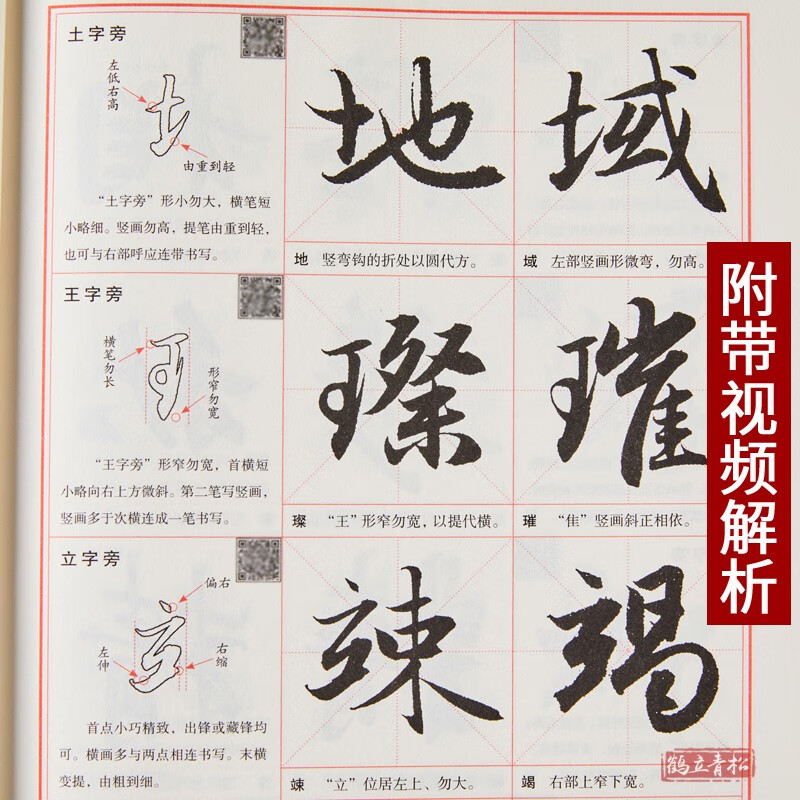 土字旁
左低右高
由重到轻
“土字旁”形小勿大，横笔短
小略细。竖画勿高，提笔由重到轻，
也可与右部呼应连带书写。
地 域
地 竖弯钩的折处以圆代方。
域 左部竖画形微弯，勿高。
王字旁
横笔勿长
形窄勿宽
“王字旁”形窄勿宽，首横短
小略向右上方微斜。第二笔写竖画，
竖画多于次横连成一笔书写。
璨 璀
璨 “王”形窄勿宽，以提代横。
璀 “隹”竖画斜正相依。
立字旁
偏右
左伸
右缩
首点小巧精致，出锋或藏锋均
可。横画多与两点相连书写。末横
变提，由粗到细。
竦 竭
竦 “立”位居左上、勿大。
竭 右部上窄下宽。
附带视频解析
鹤立青松